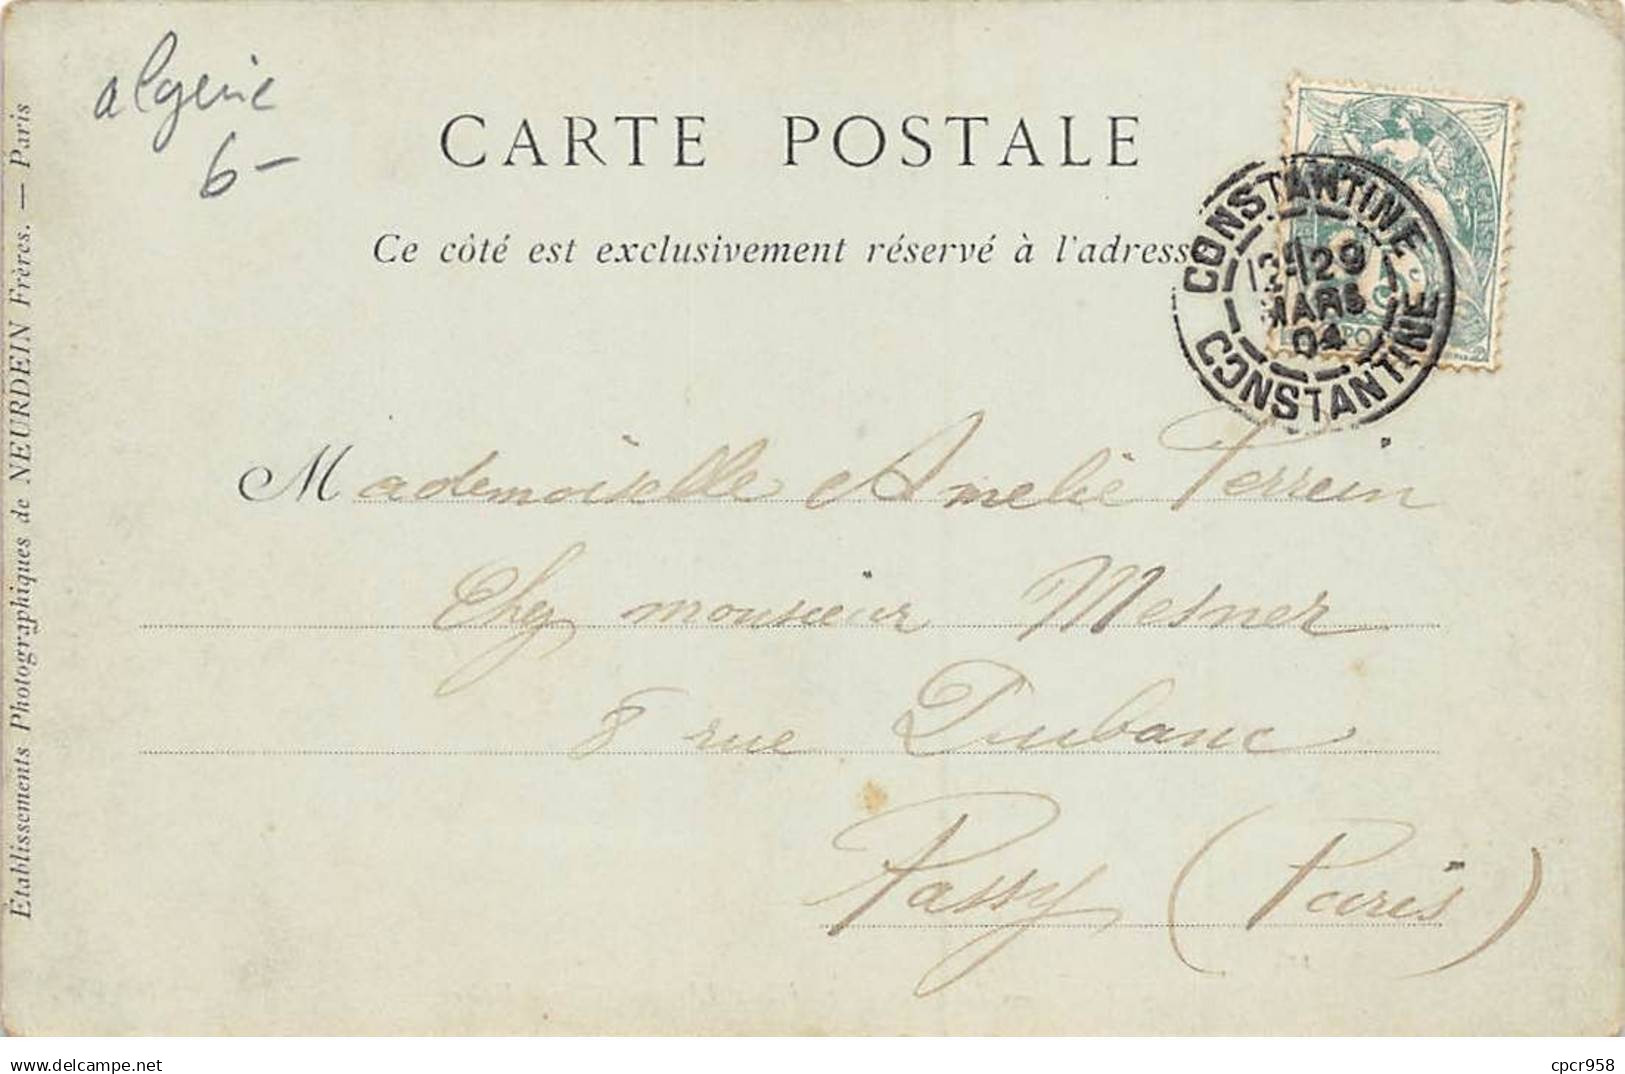 algerie
6-
CARTE POSTALE
Ce côté est exclusivement réservé à l'adress
CONSTANTINE
29
MARS
04
CONSTANTINE
Mademoiselle Amelie Perrein
Chez monsieur Mesner
8 rue Dubanc
Passy (Paris)
Etablissements Photographiques de NEURDEIN Frères. — Paris
cpcr958